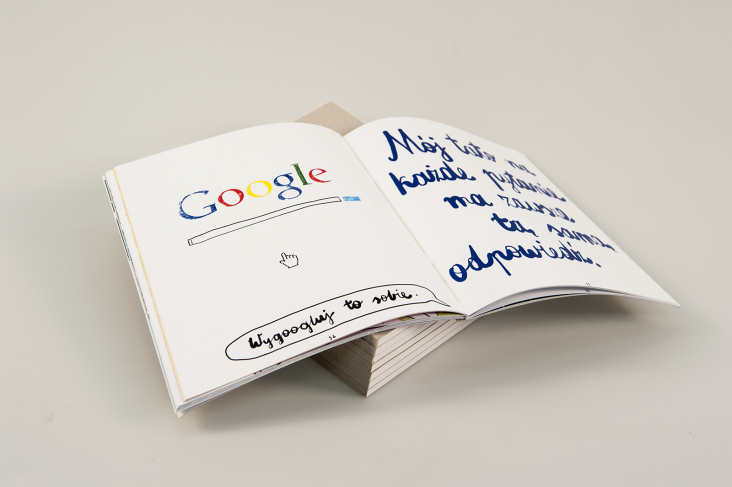 Google
Wygoogluj to sobie.
Mój tato na
każde pytanie
ma zawsze
tą samą
odpowiedź.